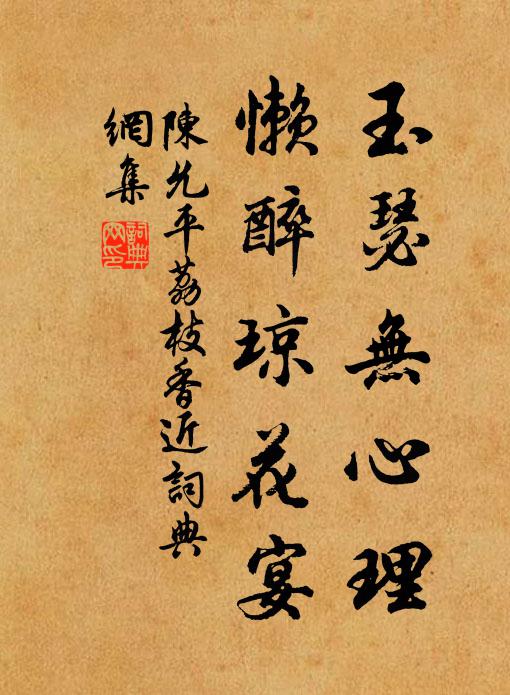 玉瑟無心理
懶醉琼花宴
陳允平荔枝香近詞典
網集
詞典
网印